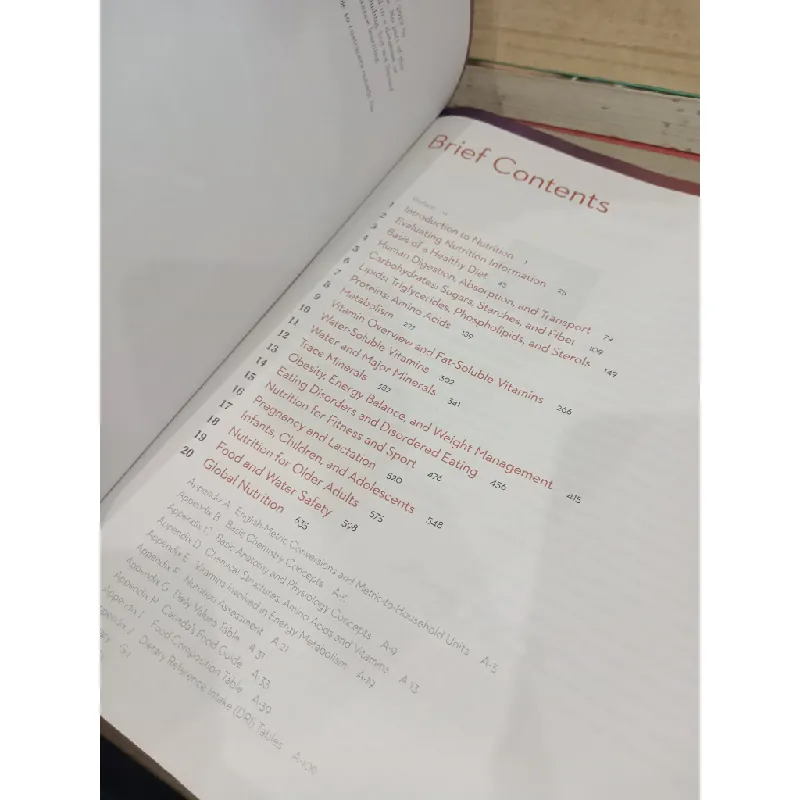 Brief Contents
Preface
1 Introduction to Nutrition 1
2 Evaluating Nutrition Information 25
3 Basis of a Healthy Diet 45
4 Human Digestion, Absorption, and Transport 72
5 Carbohydrates: Sugars, Starches, and Fiber 109
6 Lipids: Triglycerides, Phospholipids, and Sterols 149
7 Proteins: Amino Acids 189
8 Metabolism 231
9 Vitamin Overview and Fat-Soluble Vitamins 266
10 Water-Soluble Vitamins 302
11 Water and Major Minerals 341
12 Trace Minerals 382
13 Obesity, Energy Balance, and Weight Management 415
14 Eating Disorders and Disordered Eating 456
15 Nutrition for Fitness and Sport 476
16 Pregnancy and Lactation 520
17 Infants, Children, and Adolescents 548
18 Nutrition for Older Adults 575
19 Food and Water Safety 598
20 Global Nutrition 635
Appendix A English-Metric Conversions and Metric-to-Household Units A-3
Appendix B Basic Chemistry Concepts A-5
Appendix C Basic Anatomy and Physiology Concepts A-9
Appendix D Chemical Structures: Amino Acids and Vitamins A-13
Appendix E Vitamins Involved in Energy Metabolism
Appendix F Nutrition Assessment A-21
Appendix G Daily Values Table A-31
Appendix H Canada's Food Guide A-33
Appendix I Food Composition Table A-39
Appendix J Dietary Reference Intake (DRI) Tables A-106